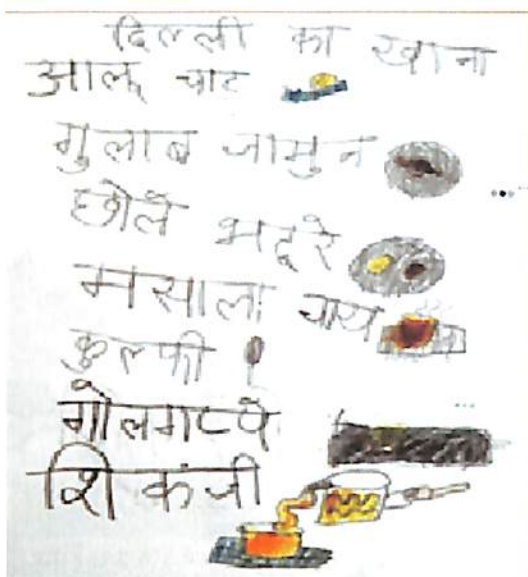 दिल्ली का खाना
आलू चाट
गुलाब जामुन
छोले भटूरे
मसाला चाय
कुल्फी
गोलगप्पे
शिकंजी